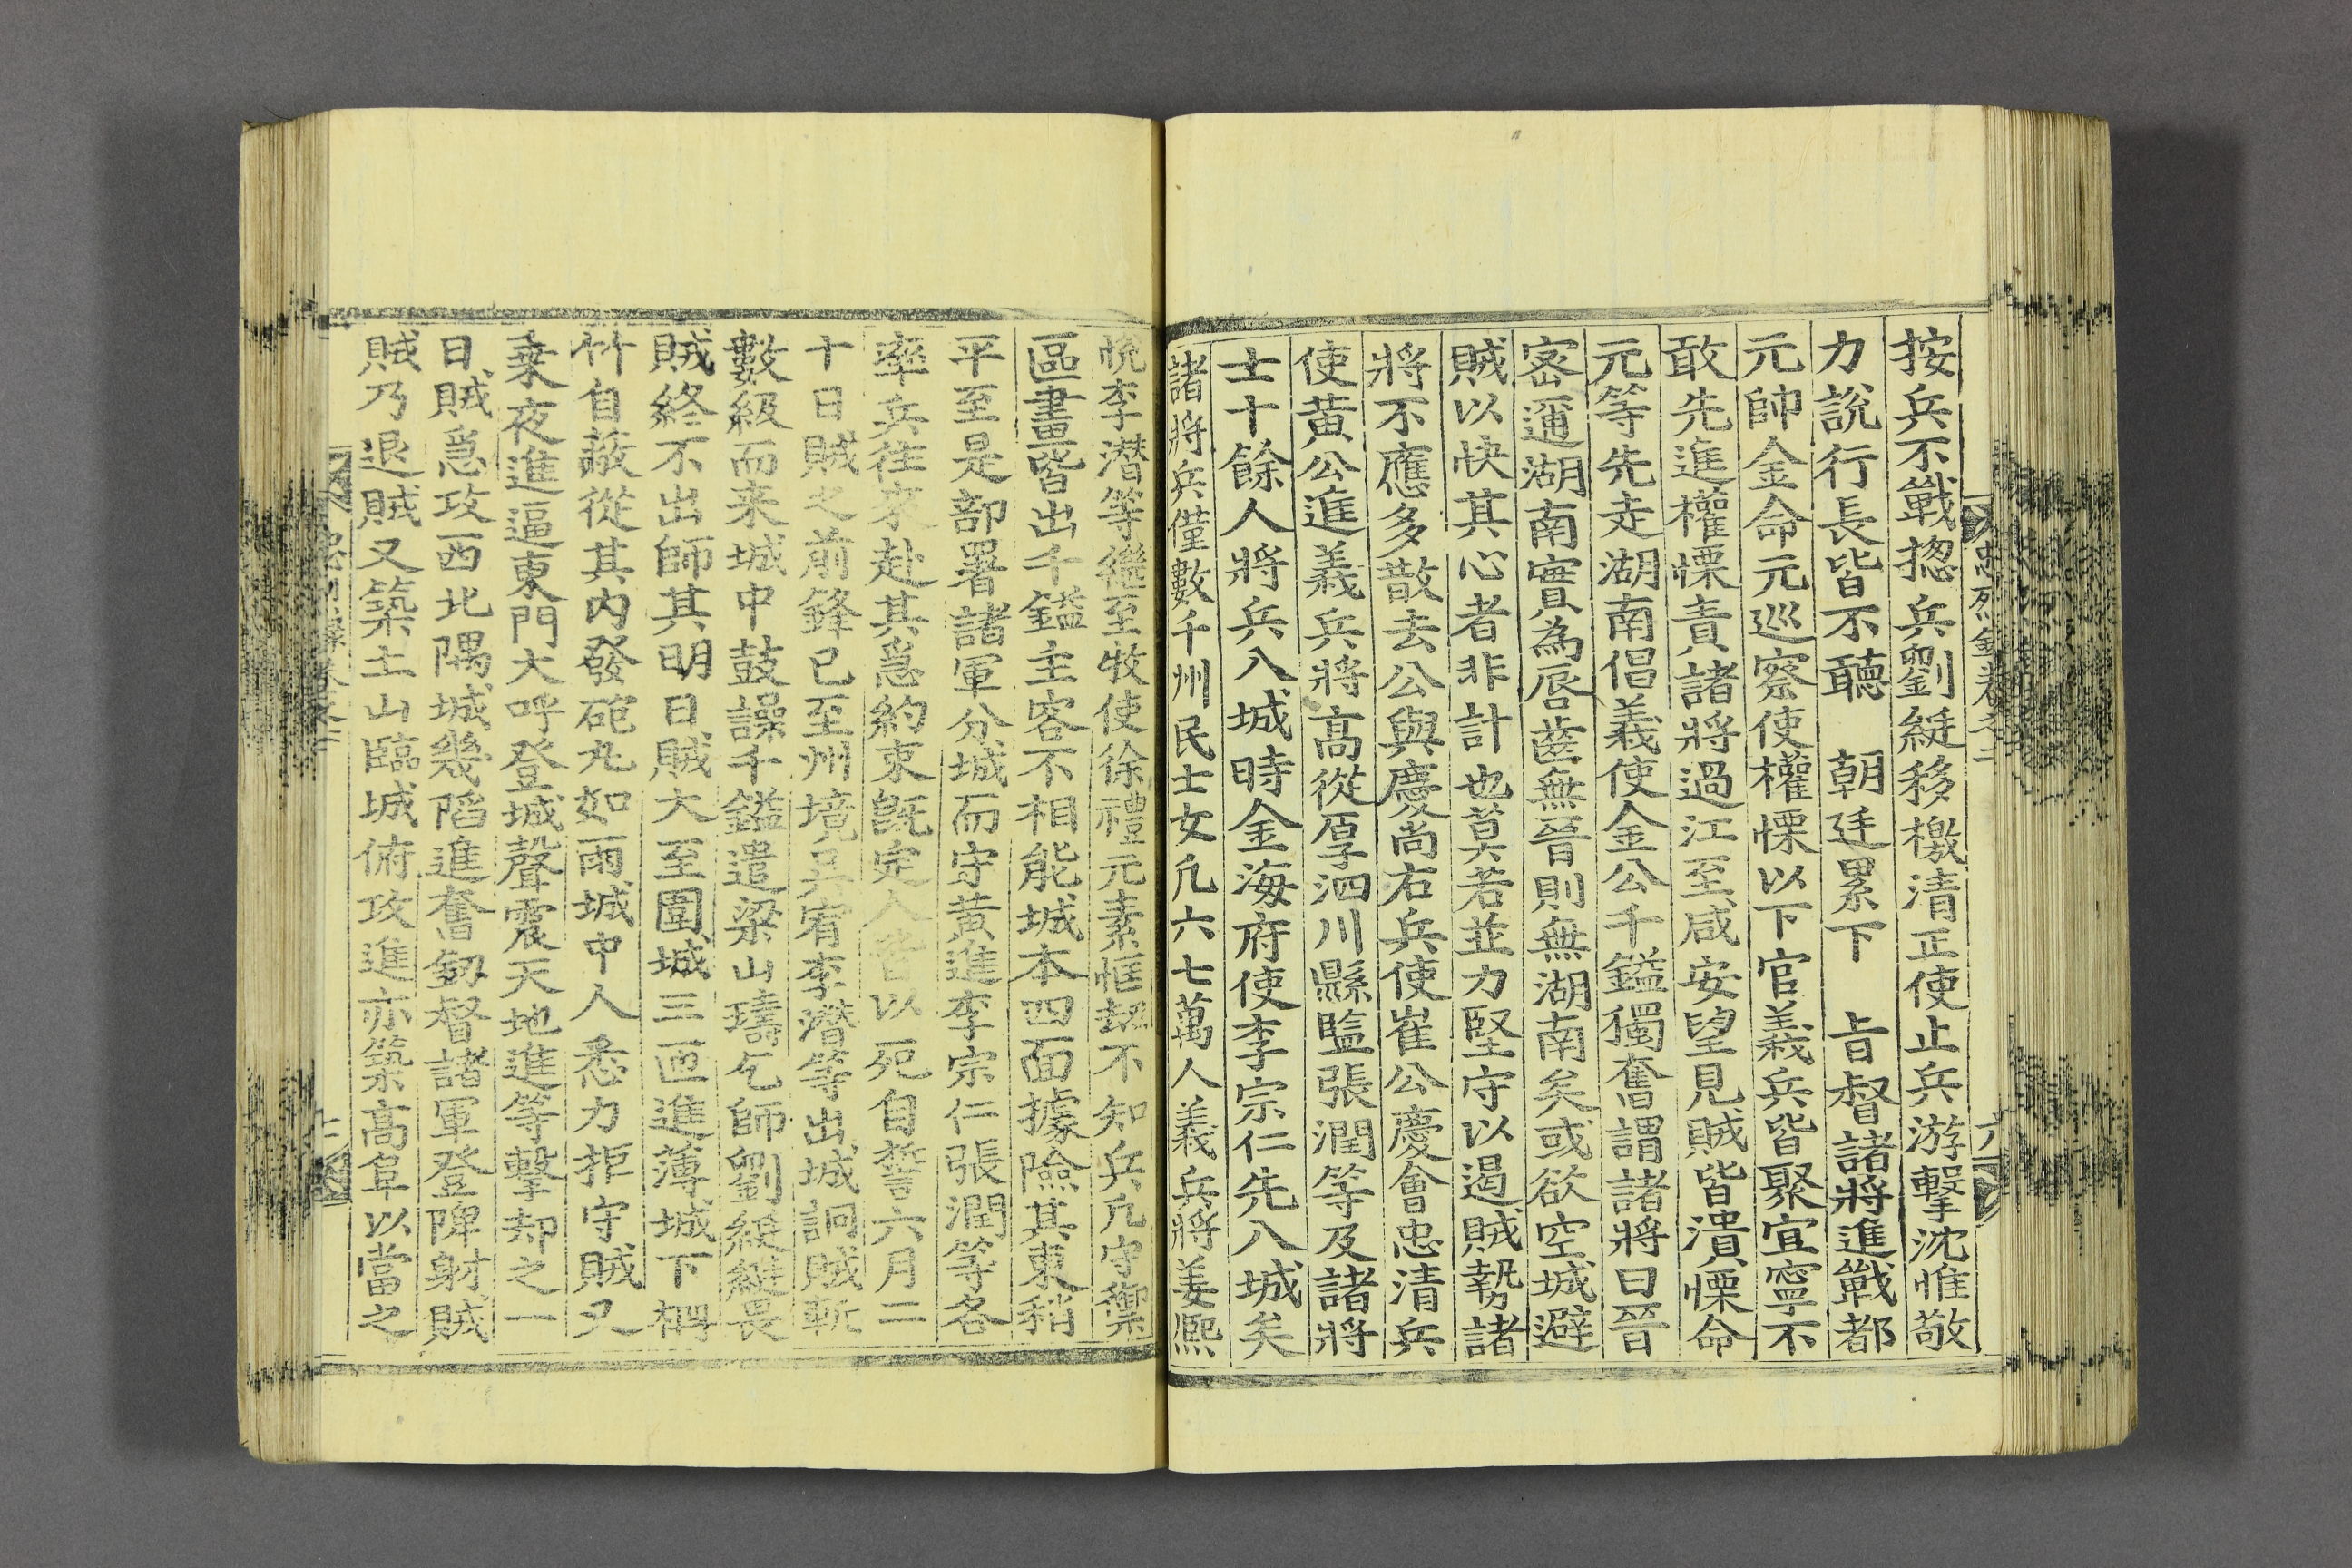 忠烈錄卷之二
六
按兵不戰揔兵劉綎移檄清正使止兵游擊沈惟敬
力說行長皆不聽　朝廷累下　旨督諸將進戰都
元帥金命元巡察使權慄以下官義兵皆聚宜寧不
敢先進權慄責諸將過江至咸安望見賊皆潰慄命
元等先走湖南倡義使金公千鎰獨奮謂諸將曰晉
密邇湖南實為唇齒無晉則無湖南矣或欲空城避
賊以快其心者非計也莫若並力堅守以遏賊勢諸
將不應多散去公與慶尚右兵使崔公慶會忠清兵
使黃公進義兵將高從厚泗川縣監張潤等及諸將
士十餘人將兵入城時金海府使李宗仁先入城矣
諸將兵僅數千州民士女凡六七萬人義兵將姜熈
悅李潛等繼至牧使徐禮元素恇㤼不知兵凡守禦
區畫皆出千鎰主客不相能城本四面據險其東稍
平至是部署諸軍分城而守黃進李宗仁張潤等各
率兵往來赴其急約束旣定人皆以死自誓六月二
十日賊之前鋒已至州境吳宥李潛等出城詗賊斬
數級而来城中鼓譟千鎰遣梁山璹乞師劉綎綎畏
賊終不出師其明日賊大至圍城三匝進薄城下棚
竹自蔽從其內發砲丸如雨城中人悉力拒守賊又
乗夜進逼東門大呼登城聲震天地進等擊却之一
日賊急攻西北隅城幾陷進奮劒督諸軍登陴射賊
賊乃退賊又築土山臨城俯攻進亦築高阜以當之